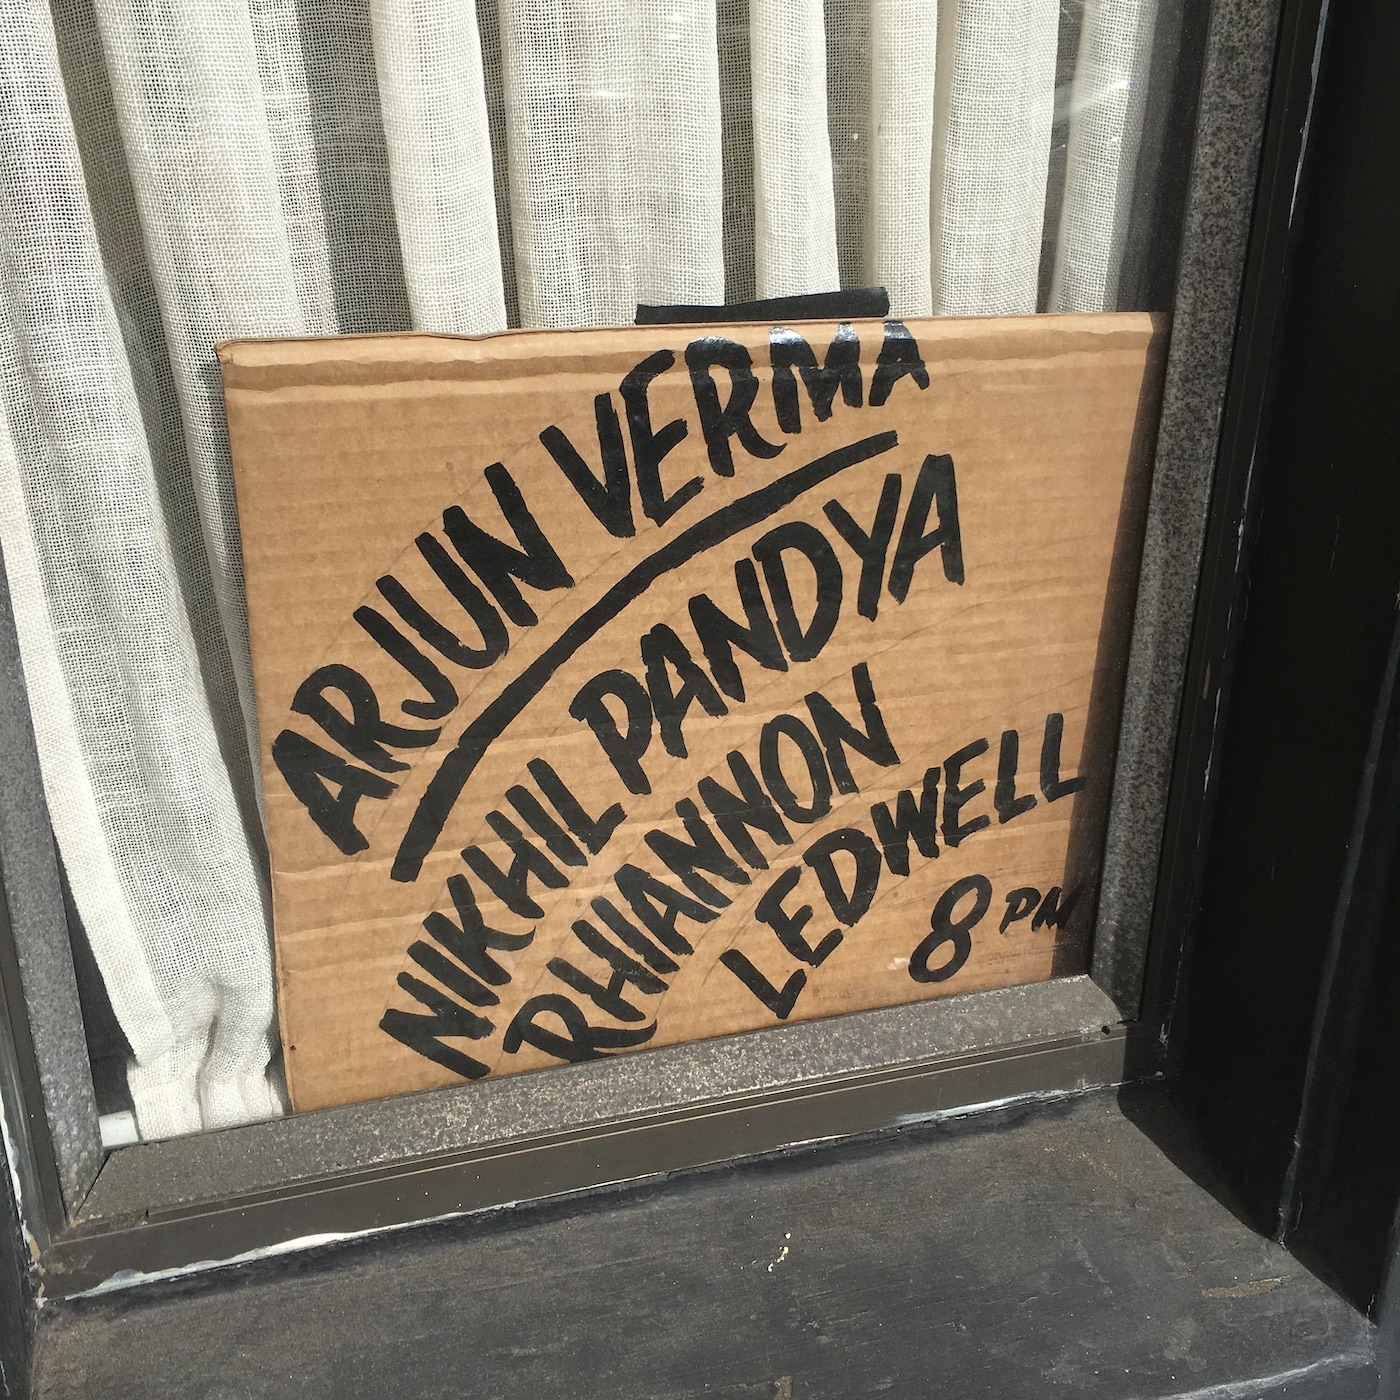 ARJUN VERMA
NIKHIL PANDYA
RHIANNON
LEDWELL
8 PM